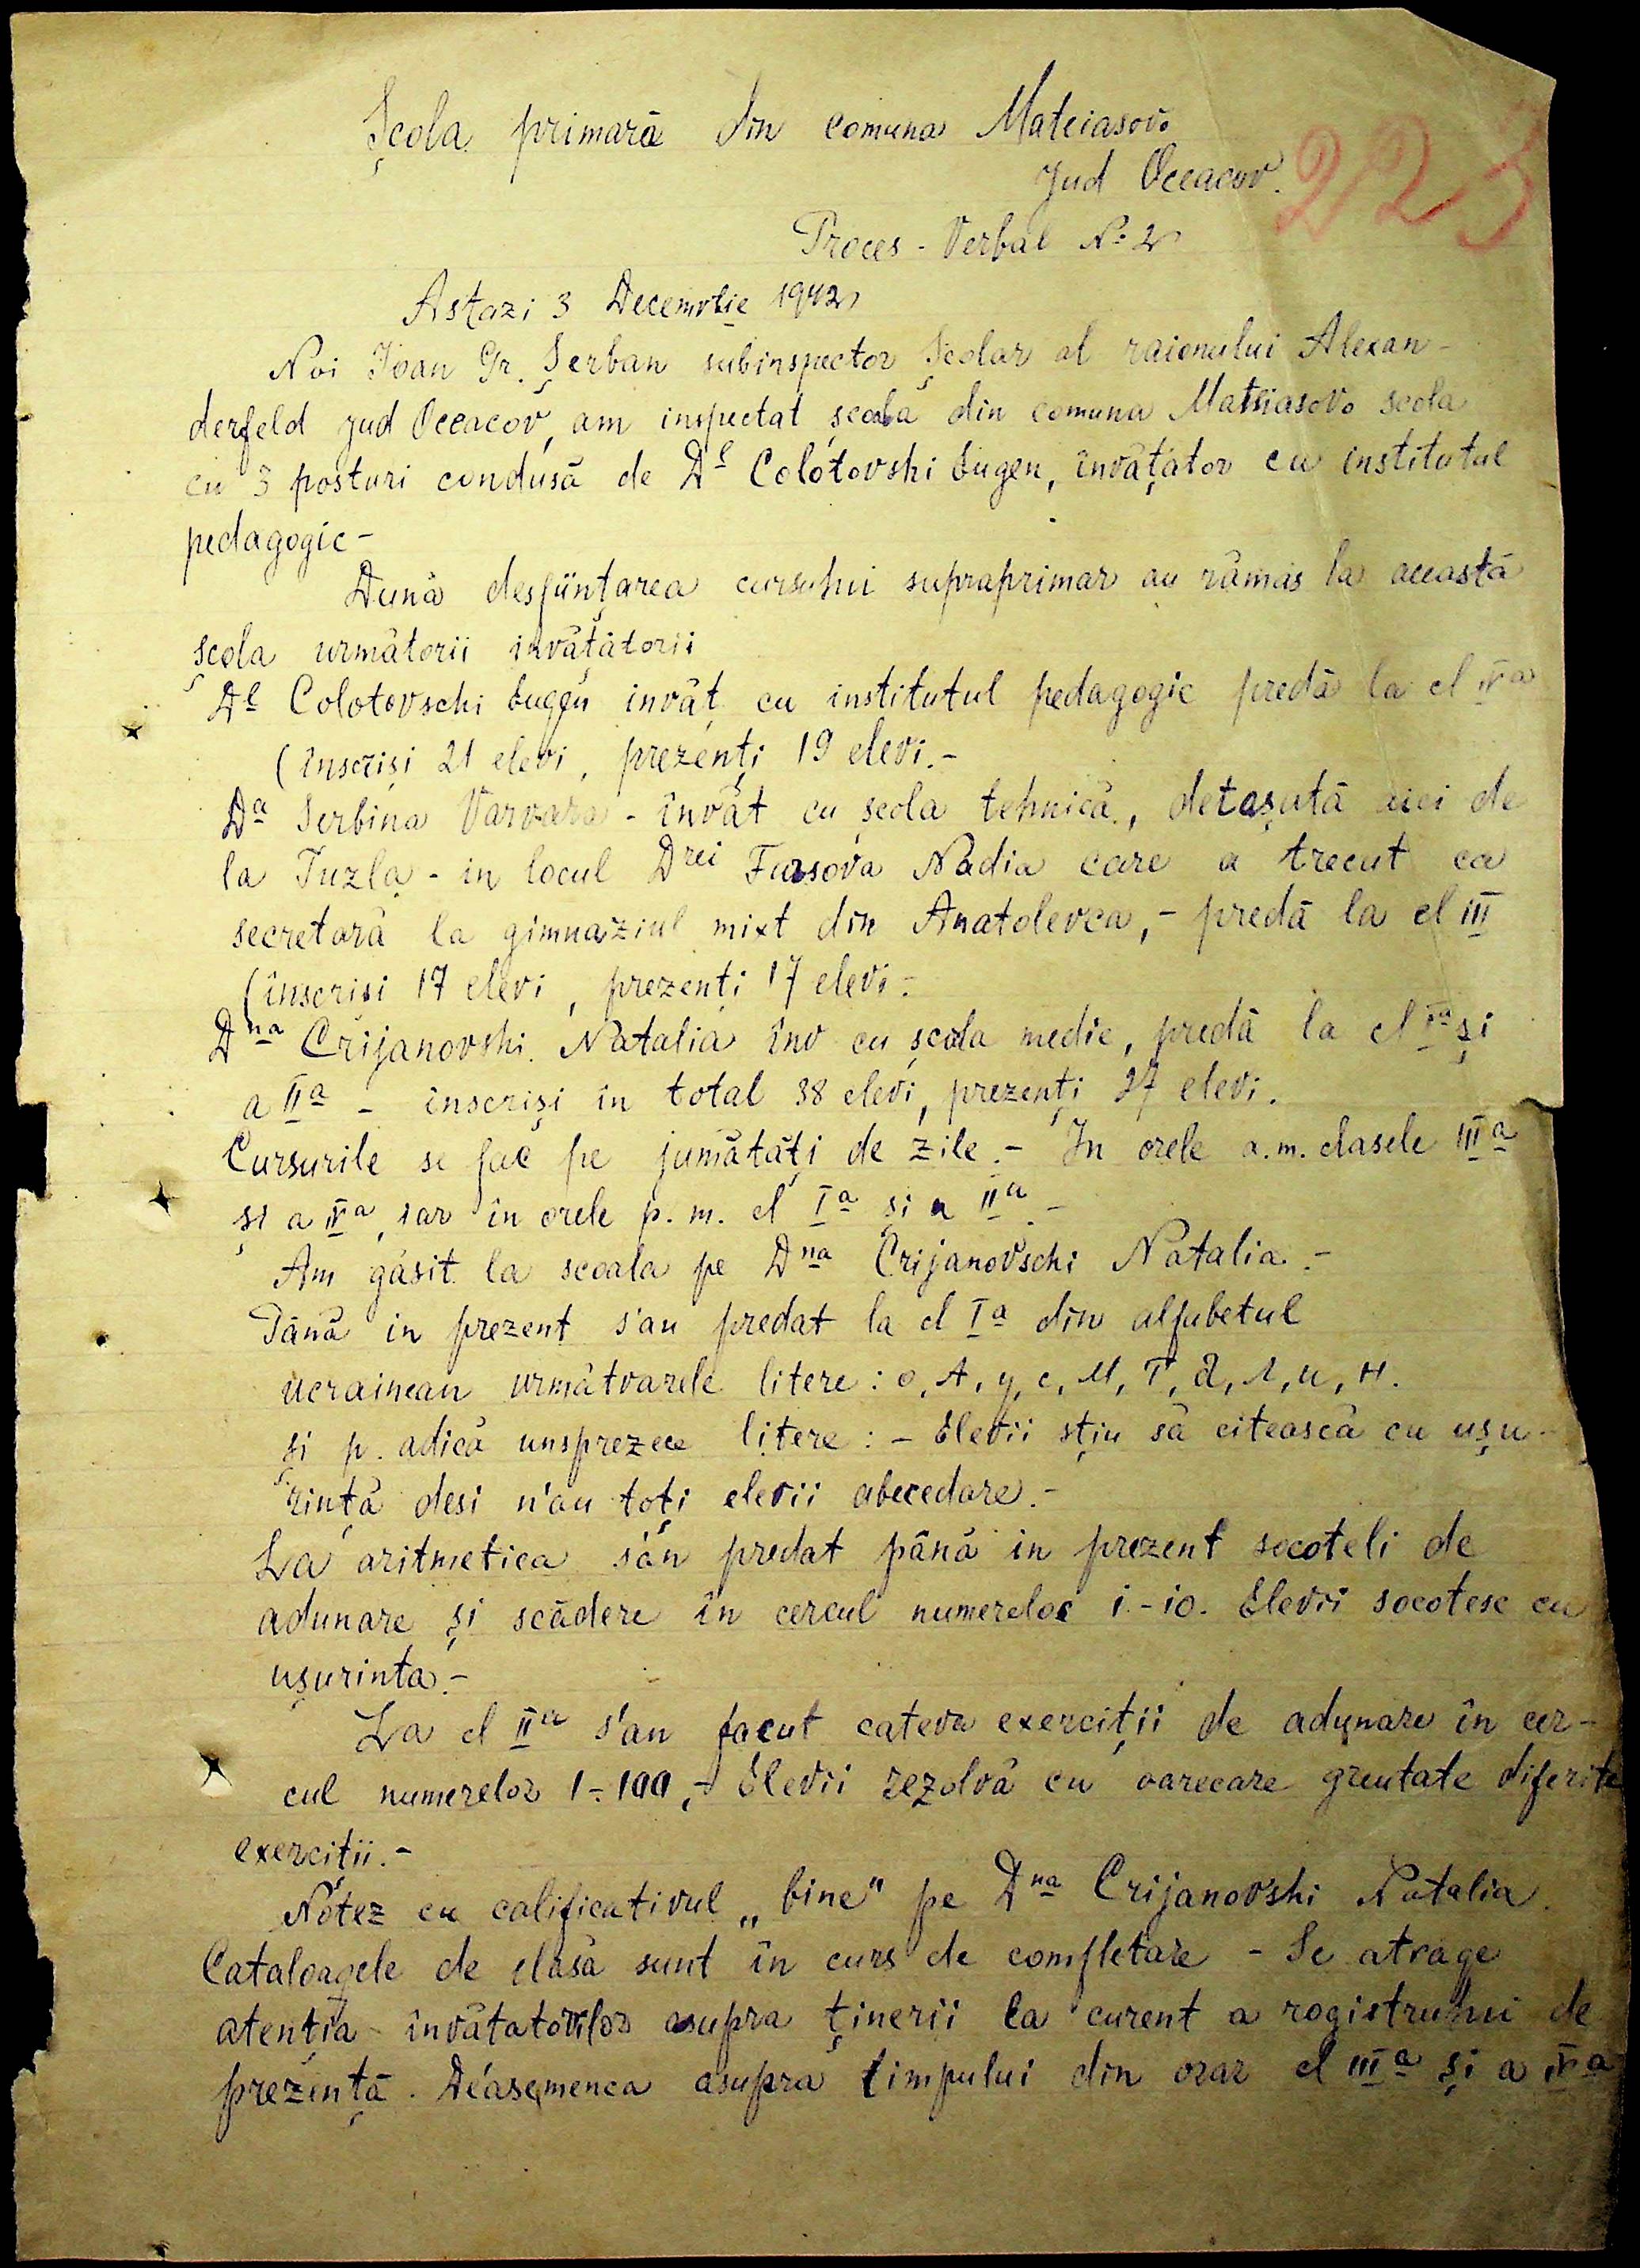 Școla primară din comuna Mateiasovo
Jud Oceacov.
223
Proces-Verbal № 2
Astazi 3 Decemvrie 1942
Noi Ioan Gr. Șerban subinspector Școlar al raionului Alexan-
derfeld jud Oceacov, am inspectat școala din comuna Mateiasovo scola
cu 3 posturi condusă de Dl Colotovshi Eugen, învățător cu institutul
pedagogic-
După desființarea cursului supraprimar au rămas la această
școla următorii învățătorii
Dl Colotovschi Eugen invăț cu institutul pedagogic predă la cl IVa
(înscriși 21 elevi, prezenți 19 elevi.-
Da Serbina Varvara - învăt cu școla tehnică, detașată aici de
la Tuzla - in locul Drei Fursova Nadia care a trecut ca
secretară la gimnaziul mixt din Anatolevca,- predă la cl III
(înscrisi 17 elevi, prezenți 17 elevi.-
Dna Crijanovshi Natalia înv cu școla medie, predă la cl Ia și
a IIa - înscriși în total 38 elevi, prezenți 27 elevi.
Cursurile se fac pe jumătăți de zile.- In orele a.m. clasele IIIa
și a IVa, iar în orele p.m. cl Ia și a IIa.-
Am găsit la scoala pe Dna Crijanovschi Natalia.-
Până in prezent s'au predat la cl Ia din alfabetul
ucrainean următoarele litere: о, А, у, с, М, Т, д, Л, и, Н.
și р. adică unsprezece litere: - Elevii știu să citească cu ușu-
rință desi n'au toți elevii abecedare.-
La aritmetica s'au predat până in prezent socoteli de
adunare și scădere în cercul numerelor 1-10. Elevii socotesc cu
ușurinta.-
La cl IIa s'au facut cateva exerciții de adunare în cer-
cul numerelor 1-100,- Elevii rezolvă cu oarecare greutate diferite
exercitii.-
Notez cu calificativul „bine" pe Dna Crijanovshi Natalia.
Cataloagele de clasă sunt în curs de completare - Se atrage
atenția învătatorilor asupra ținerii la curent a registrului de
prezență. Deasemenea asupra timpului din orar cl IIIa și a IVa